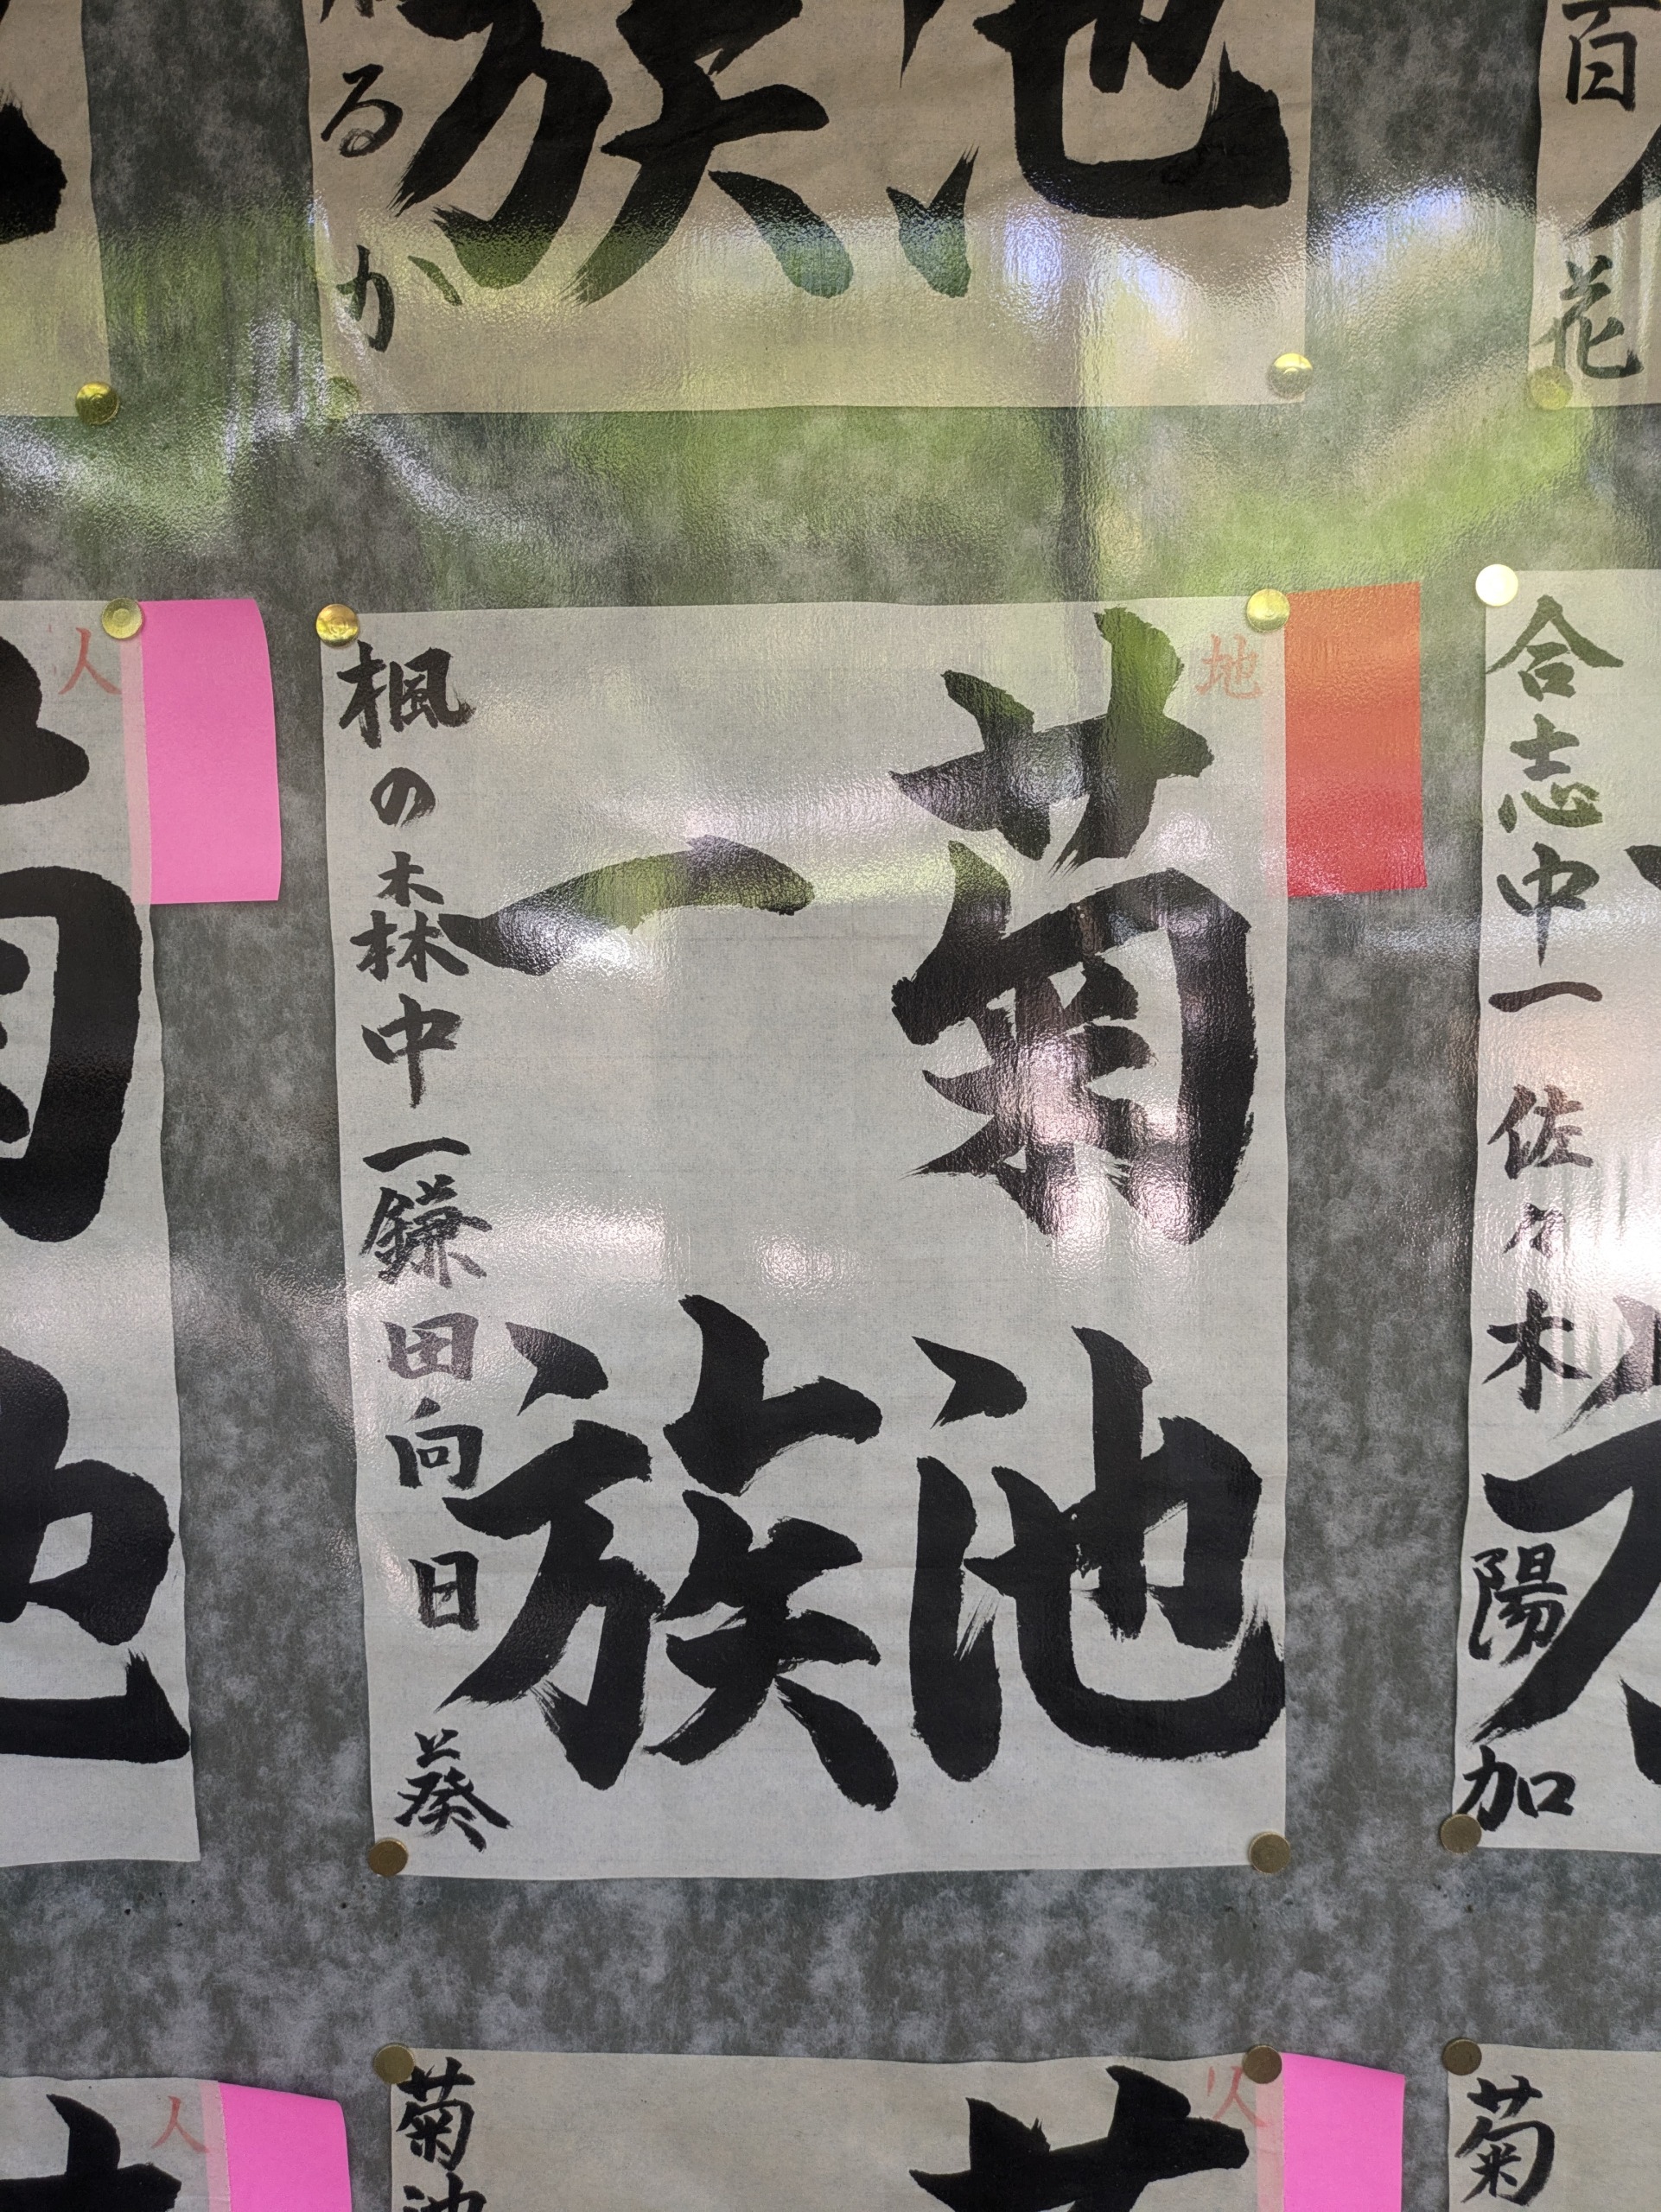 族
池
るか
百花
人
地
菊池
一族
楓の森中一鎌田向日葵
合志中一佐々木陽加
菊池
人
人
菊池
菊